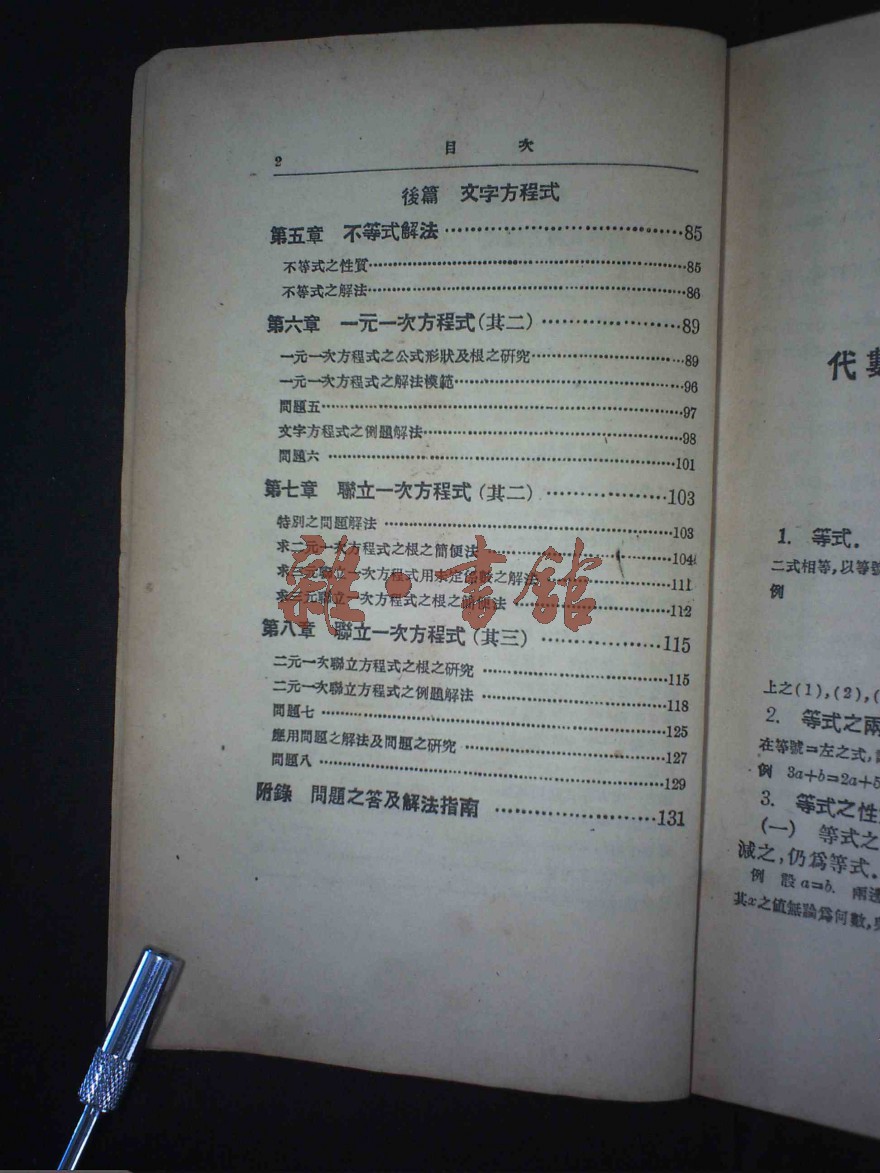 2 目 次
後篇 文字方程式
第五章 不等式解法……85
不等式之性質……85
不等式之解法……86
第六章 一元一次方程式(其二)……89
一元一次方程式之公式形狀及根之研究……89
一元一次方程式之解法模範……96
問題五……97
文字方程式之例題解法……98
問題六……101
第七章 聯立一次方程式(其二)……103
特別之問題解法……103
求二元一次方程式之根之簡便法……104
求三元聯立一次方程式用未定係數之解法……111
求三元聯立一次方程式之根之簡便法……112
第八章 聯立一次方程式(其三)……115
二元一次聯立方程式之根之研究……115
二元一次聯立方程式之例題解法……118
問題七……125
應用問題之解法及問題之研究……127
問題八……129
附錄 問題之答及解法指南……131
雜·書館
代數
1. 等式.
二式相等,以等號
例
上之(1),(2),(
2. 等式之兩
在等號=左之式,
例 3a+b=2a+5
3. 等式之性
(一) 等式之
減之,仍爲等式.
例 設a=b. 兩邊
其x之值無論爲何數,